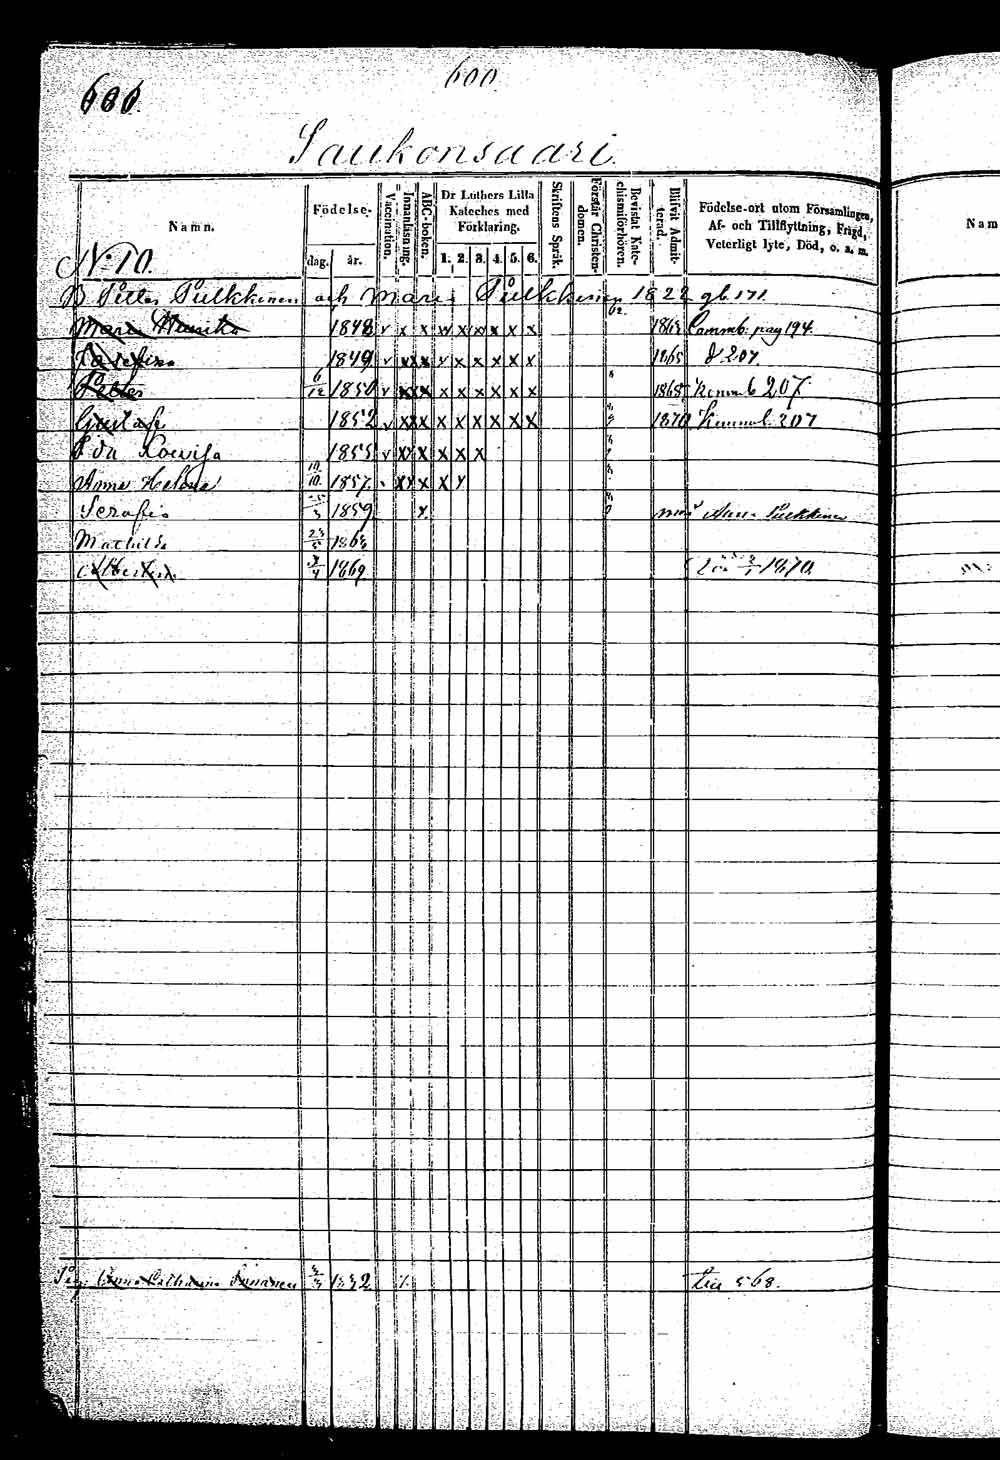 600
606
Saukonsaari
Namn.
Födelse-
dag. år.
Vaccination.
Innanläsning.
ABC-boken.
Dr Luthers Lilla Kateches med Förklaring.
1. 2. 3. 4. 5. 6.
Skriftens Språk.
Förstår Christendomen.
Bevistat Katechismiförhören.
Blifvit Admitterad.
Födelse-ort utom Församlingen, Af- och Tillflyttning, Frägd, Veterligt lyte, Död, o. s. m.
Nam
No 10.
B Petter Pulkkinen och Maria Pulkkinen 1822 gb. 171
Maria 1848 v x x x x x x x x Commb. pag 194.
Josefina 1849 v x x x x x x x x 1865 d 207.
Petter 6/12 1850 v x x x x x x x x 1868 Kommb 207
Gustaf 1852 v x x x x x x x x 1870 Kommb. 207
Ida Lovisa 1855 v x x x x x
Anna Helena 10/10 1857. x x x x
Serafia 1859 x. Anna Pulkkinen
Mathilda 23/5
1869 1870.
Anna Catharina 568.